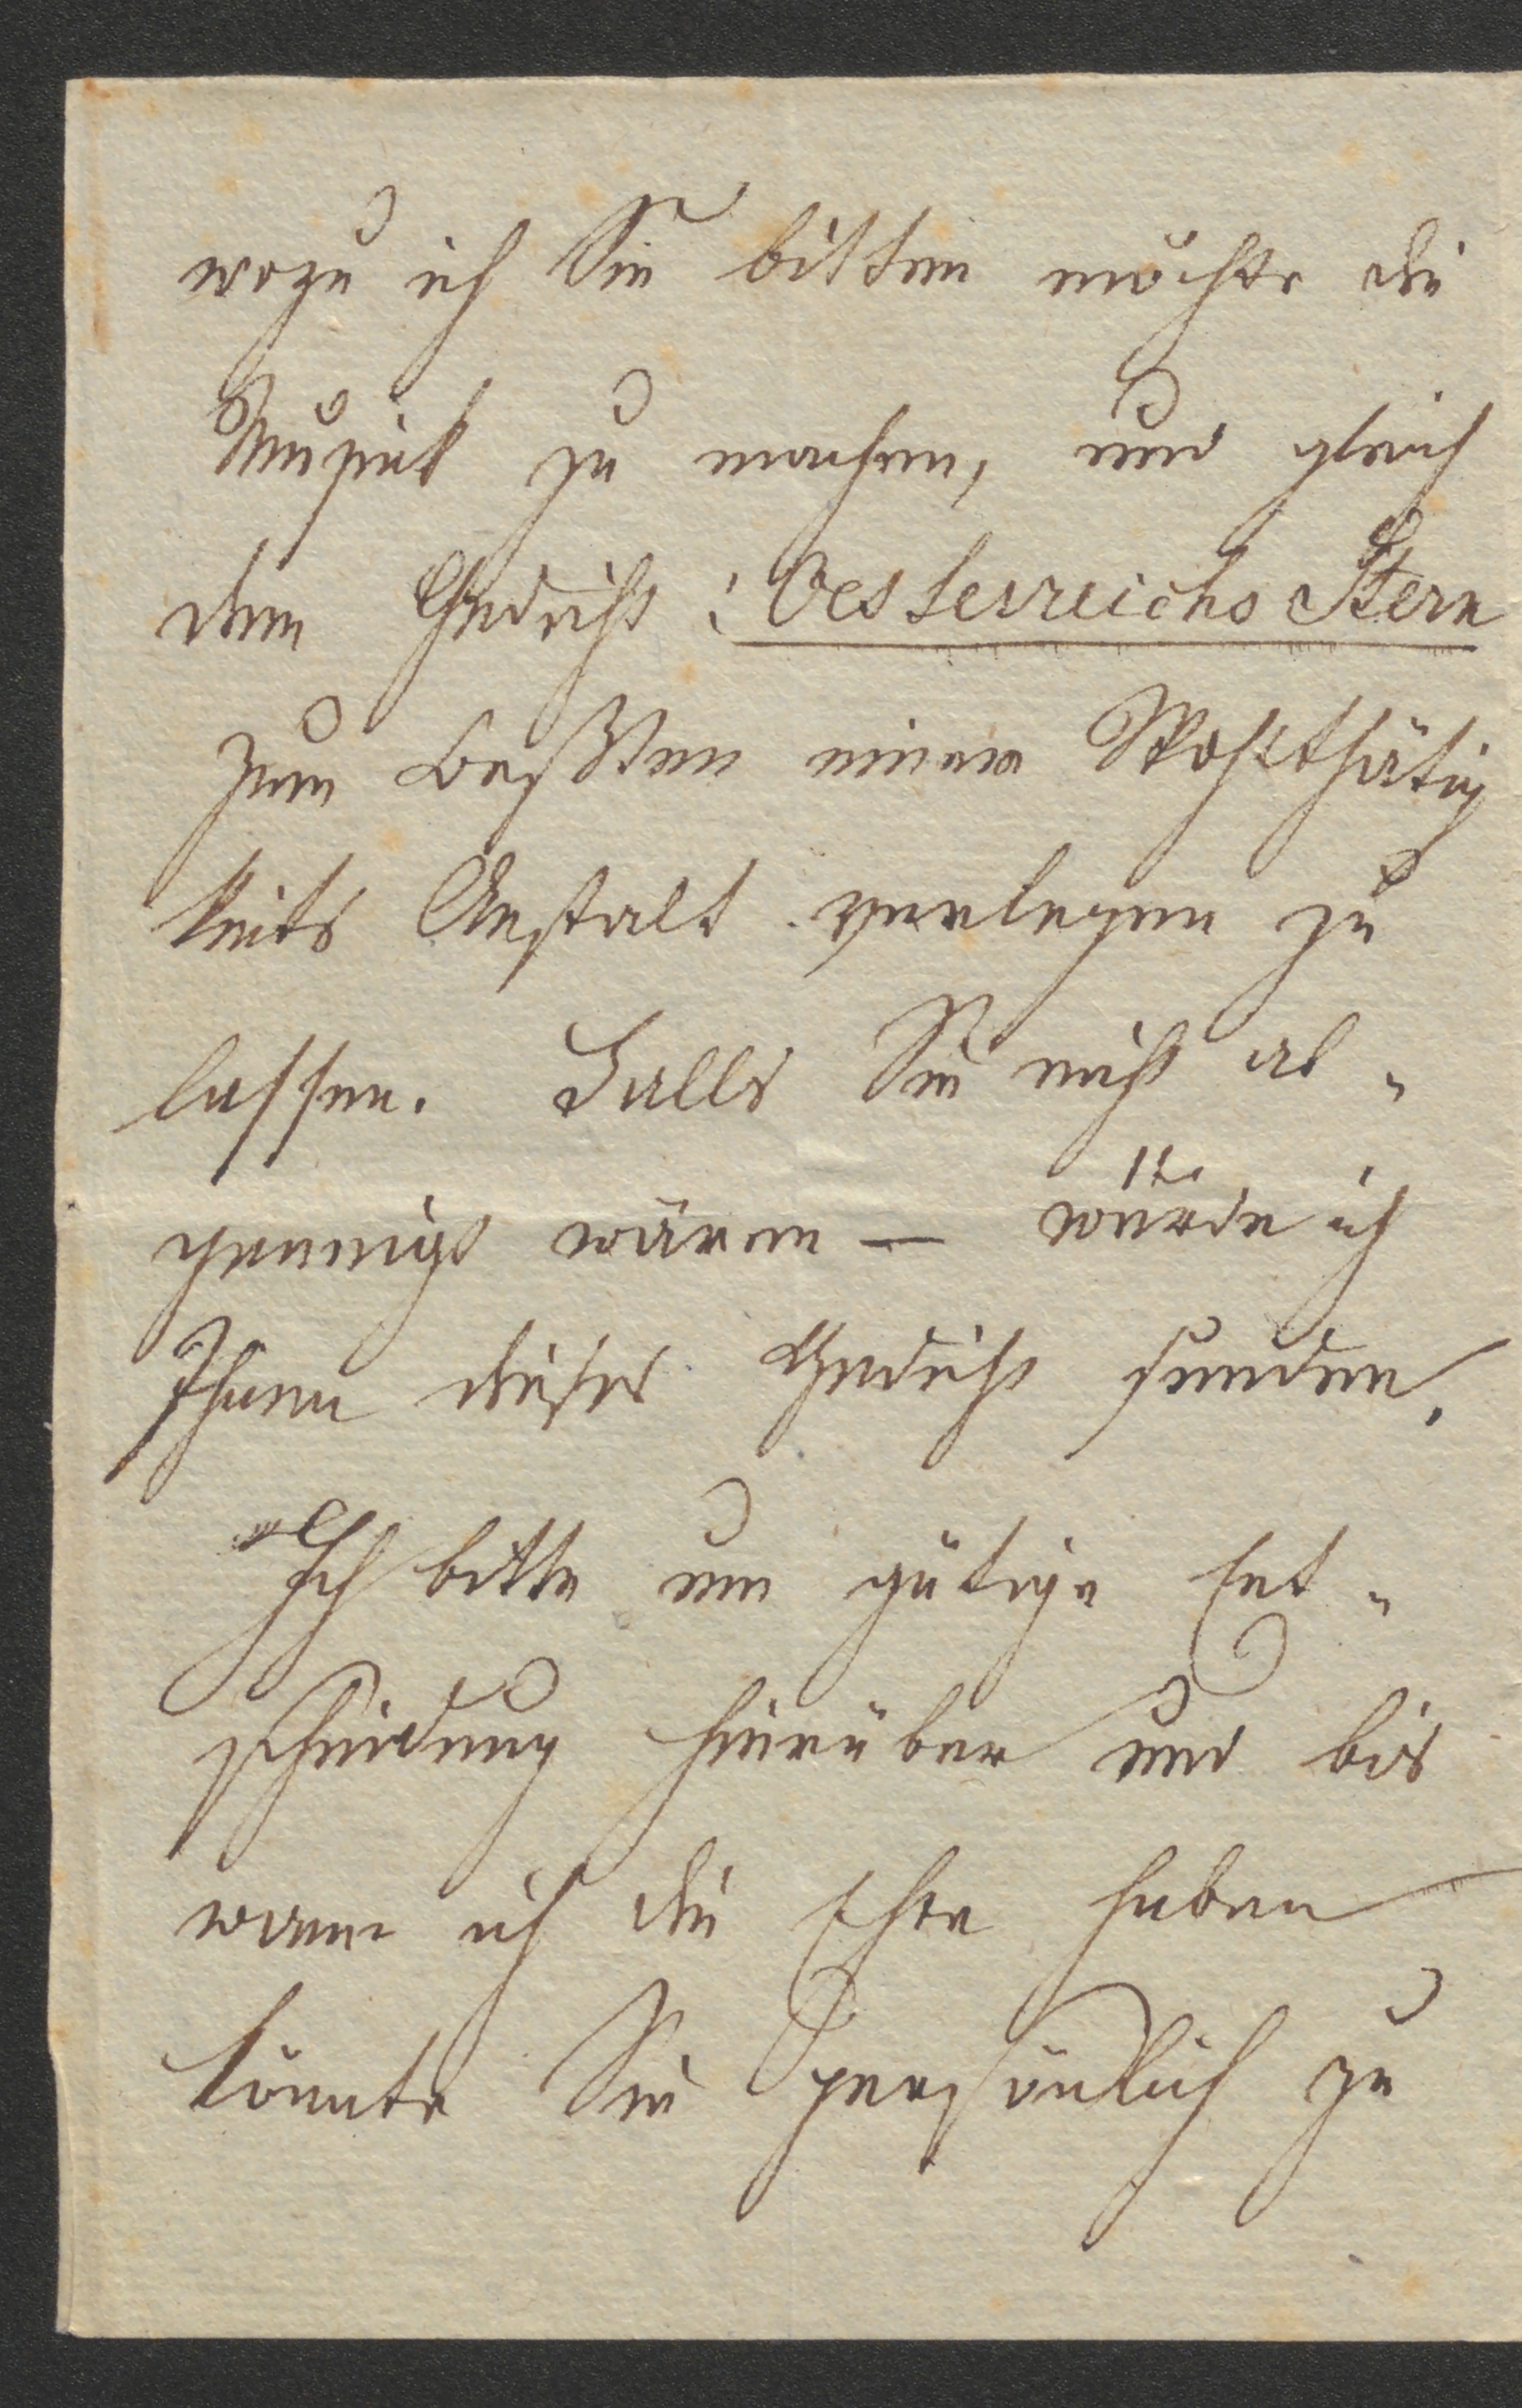 wozu ich Sie bitten möchte die
Musick zu machen, und gleich
dem Gedicht: Oesterreichs Stern
zum Beßten einer Wohlthätig
keits Anstalt verlegen zu
lassen. Falls Sie nicht ab-
geneigt wären — würde ich
Ihnen dieses Gedicht senden.
Ich bitte um gütige Ent-
scheidung hierüber und bis
wann ich die Ehre haben
könnte Sie persönlich zu